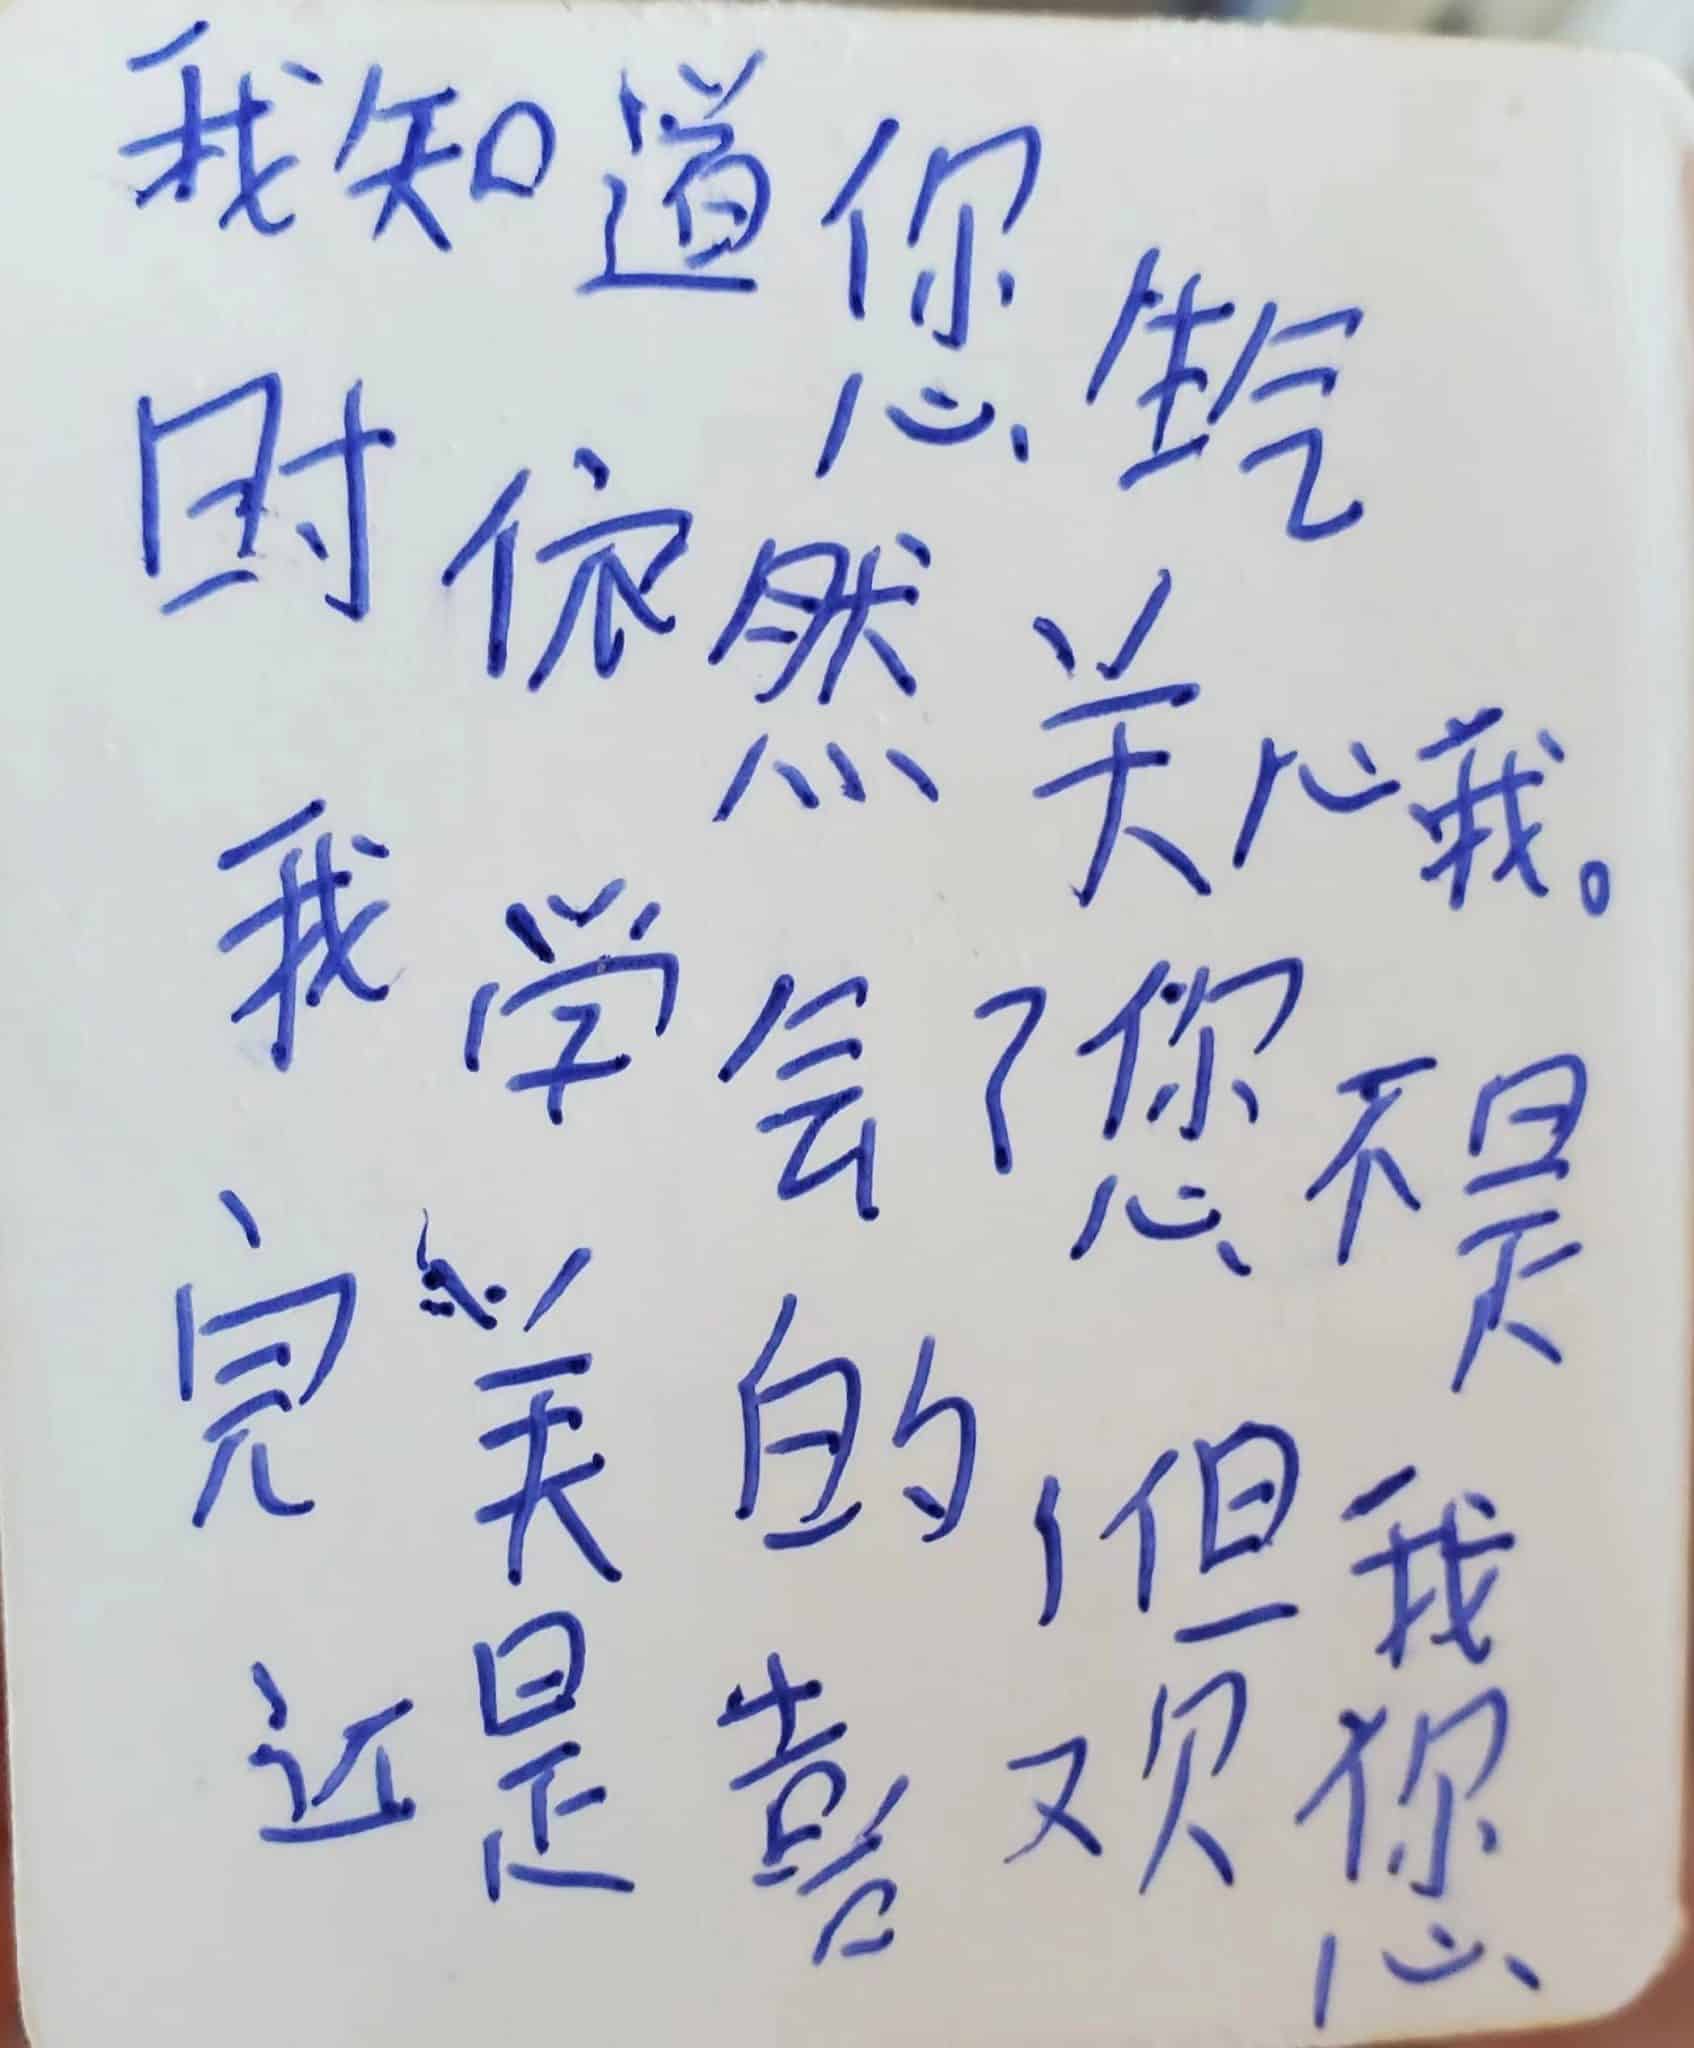 我知道您生气
时依然关心我。
我学会了您不是
完美的，但我
还是喜欢您